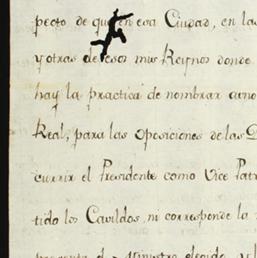 pecto de que en esa Ciudad, en la
y otras de esos mis Reynos donde
hay la practica de nombrar
Real, para las oposiciones de las
currir el Presidente como Vice Patr
tido los Cavildos, ni corresponde la
Ministro elegido